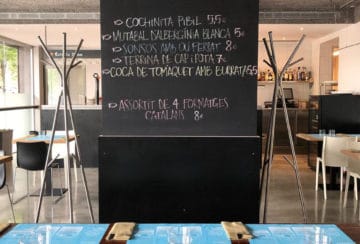 COCHINITA PIBIL 5,5€
MUTABAL D'ALBERGÍNIA BLANCA 5€
SONSOS AMB OU FERRAT 8€
TERRINA DE CAP I POTA 7€
COCA DE TOMAQUET AMB BURRATA 6,5
ASSORTIT DE 4 FORMATGES
CATALANS 8€